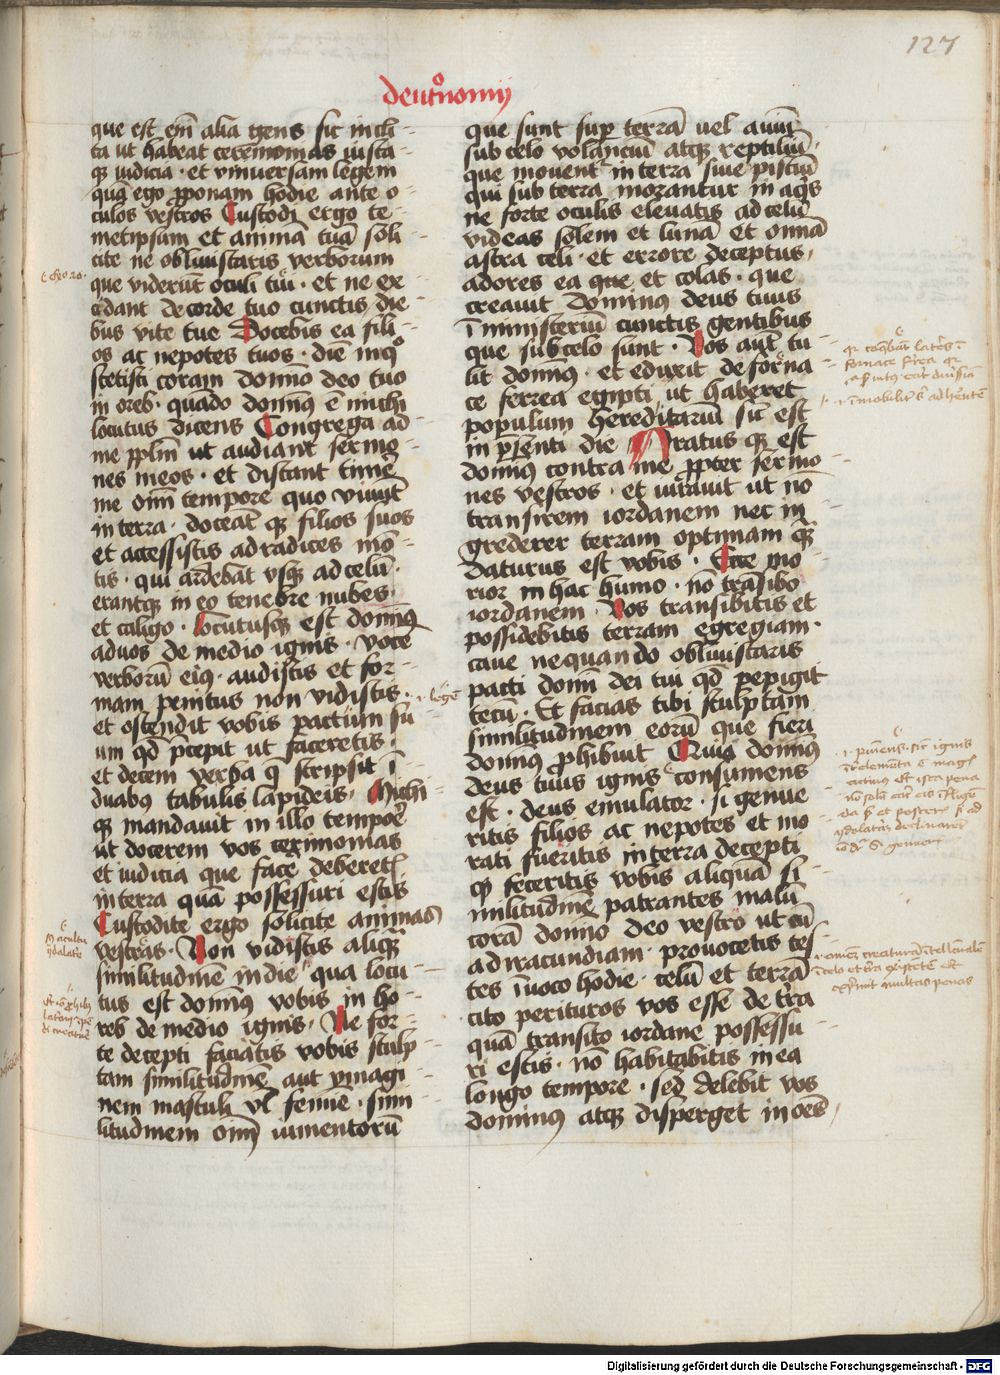 127
deut͛onomij
que est em̄ alia gens sic incli
ta ut habeat ceremonias iusta
q̨ iudicia · et vniuersam legem
quā ego p̱ponam hodie ante o
culos vestros Custodi ergo te
metipsam et animā tuā soli
cite ne obliuiscaris verborum
que viderūt oculi tui · et ne ex
cedant de corde tuo cunctis die
bus vite tue Docebis ea fili
os ac nepotes tuos · die in qͦ
stetisti coram domīo deo tuo
in oreb · quādo domin9 ē michi
locutus dicens Congrega ad
me pplm̄ ut audiant sermo
nes meos · et discant time
me om̄i tempore quo viuūt
in terra · doceāt q̨ filios suos
et accessistis ad radices mō
tis · qui ardebāt vsq̨ ad celū ·
erantq̨ in eo tenebre nubes
et caligo · Locutusq̨ est domin9
ad uos de medio ignis · voce
verborū ei9 · audistis et for
mam penitus non vidistis ·
et ostendit vobis pactum su
um qd̄ p̄cepit ut faceretis ·
et decem verba q̄ scripsit ī
duab9 tabulis lapideis · Michi
q̨ mandauit in illo tempoē
ut docerem vos cerimonias
et iudicia que facē deberetl
in terra quā possessuri estis
Custodite ergo solicite animas
vestras · Non vidistis aliq̄
similitudinē in die qua locu
tus est domin9 vobis in ho
reb de medio ignis · Ne for
te decepti faciatis vobis sculp
tam similitudinē aut ymagi
nem masculi vl̄ femīe · simi
litudinem oīm iumentorū
que sunt sup̱ terrā uel auiū
sub celo volanciū atq̨ reptiliū
que mouent͛ in terra siue pisciū
qui sub terra morantur in aq̄s
ne forte oculis eleuatis ad celū
videas solem et lunā et omnā
astra celi · et errore deceptus
adores ea que et colas · que
creauit domin9 deus tuus
ī ministeriū cunctis gentibus
que sub celo sunt · Vos aut̄ tu
lit domin9 · et eduxit de forna
ce ferrea egipti ut haberet
populum hereditariū sic est
in p̄senti die Iratus q̨ est
domin9 contra me p̱pter sermo
nes vestros · et iurauit ut nō
transirem iordanem nec in
grederer terram optimam q̄
daturus est vobis · Ecce mo
rior in hac humo · nō trāsibo
iordanem · Vos transibitis et
possidebitis terram egregiam ·
caue nequando obliuiscaris
pacti domī dei tui qd̄ pepigit
tecū · Et facias tibi sculptam
similitudinem eorū que fieri
domin9 p̱hibuit Quia domin9
deus tuus ignis consumens
est · deus emulator · si genue
ritis filios ac nepotes et mo
rati fueritis in terra decepti
q̨ feceritis vobis aliquā si
militudinē patrantes malū
corā domīo deo vestro ut eū
ad iracundiam · prouocetis tes
tes īuoco hodie · celū et terrā
cito perituros vos esse de tr̄a
quā transito iordane possessu
ri estis · nō habitabitis in ea
longo tempore · sed delebit vos
dominus atq̨ disperget in oēs
Digitalisierung gefördert durch die Deutsche Forschungsgemeinschaft - DFG